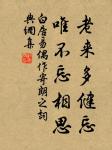 老来多健忘
唯不忘相思
白居易偶作寄朗之词
典网集